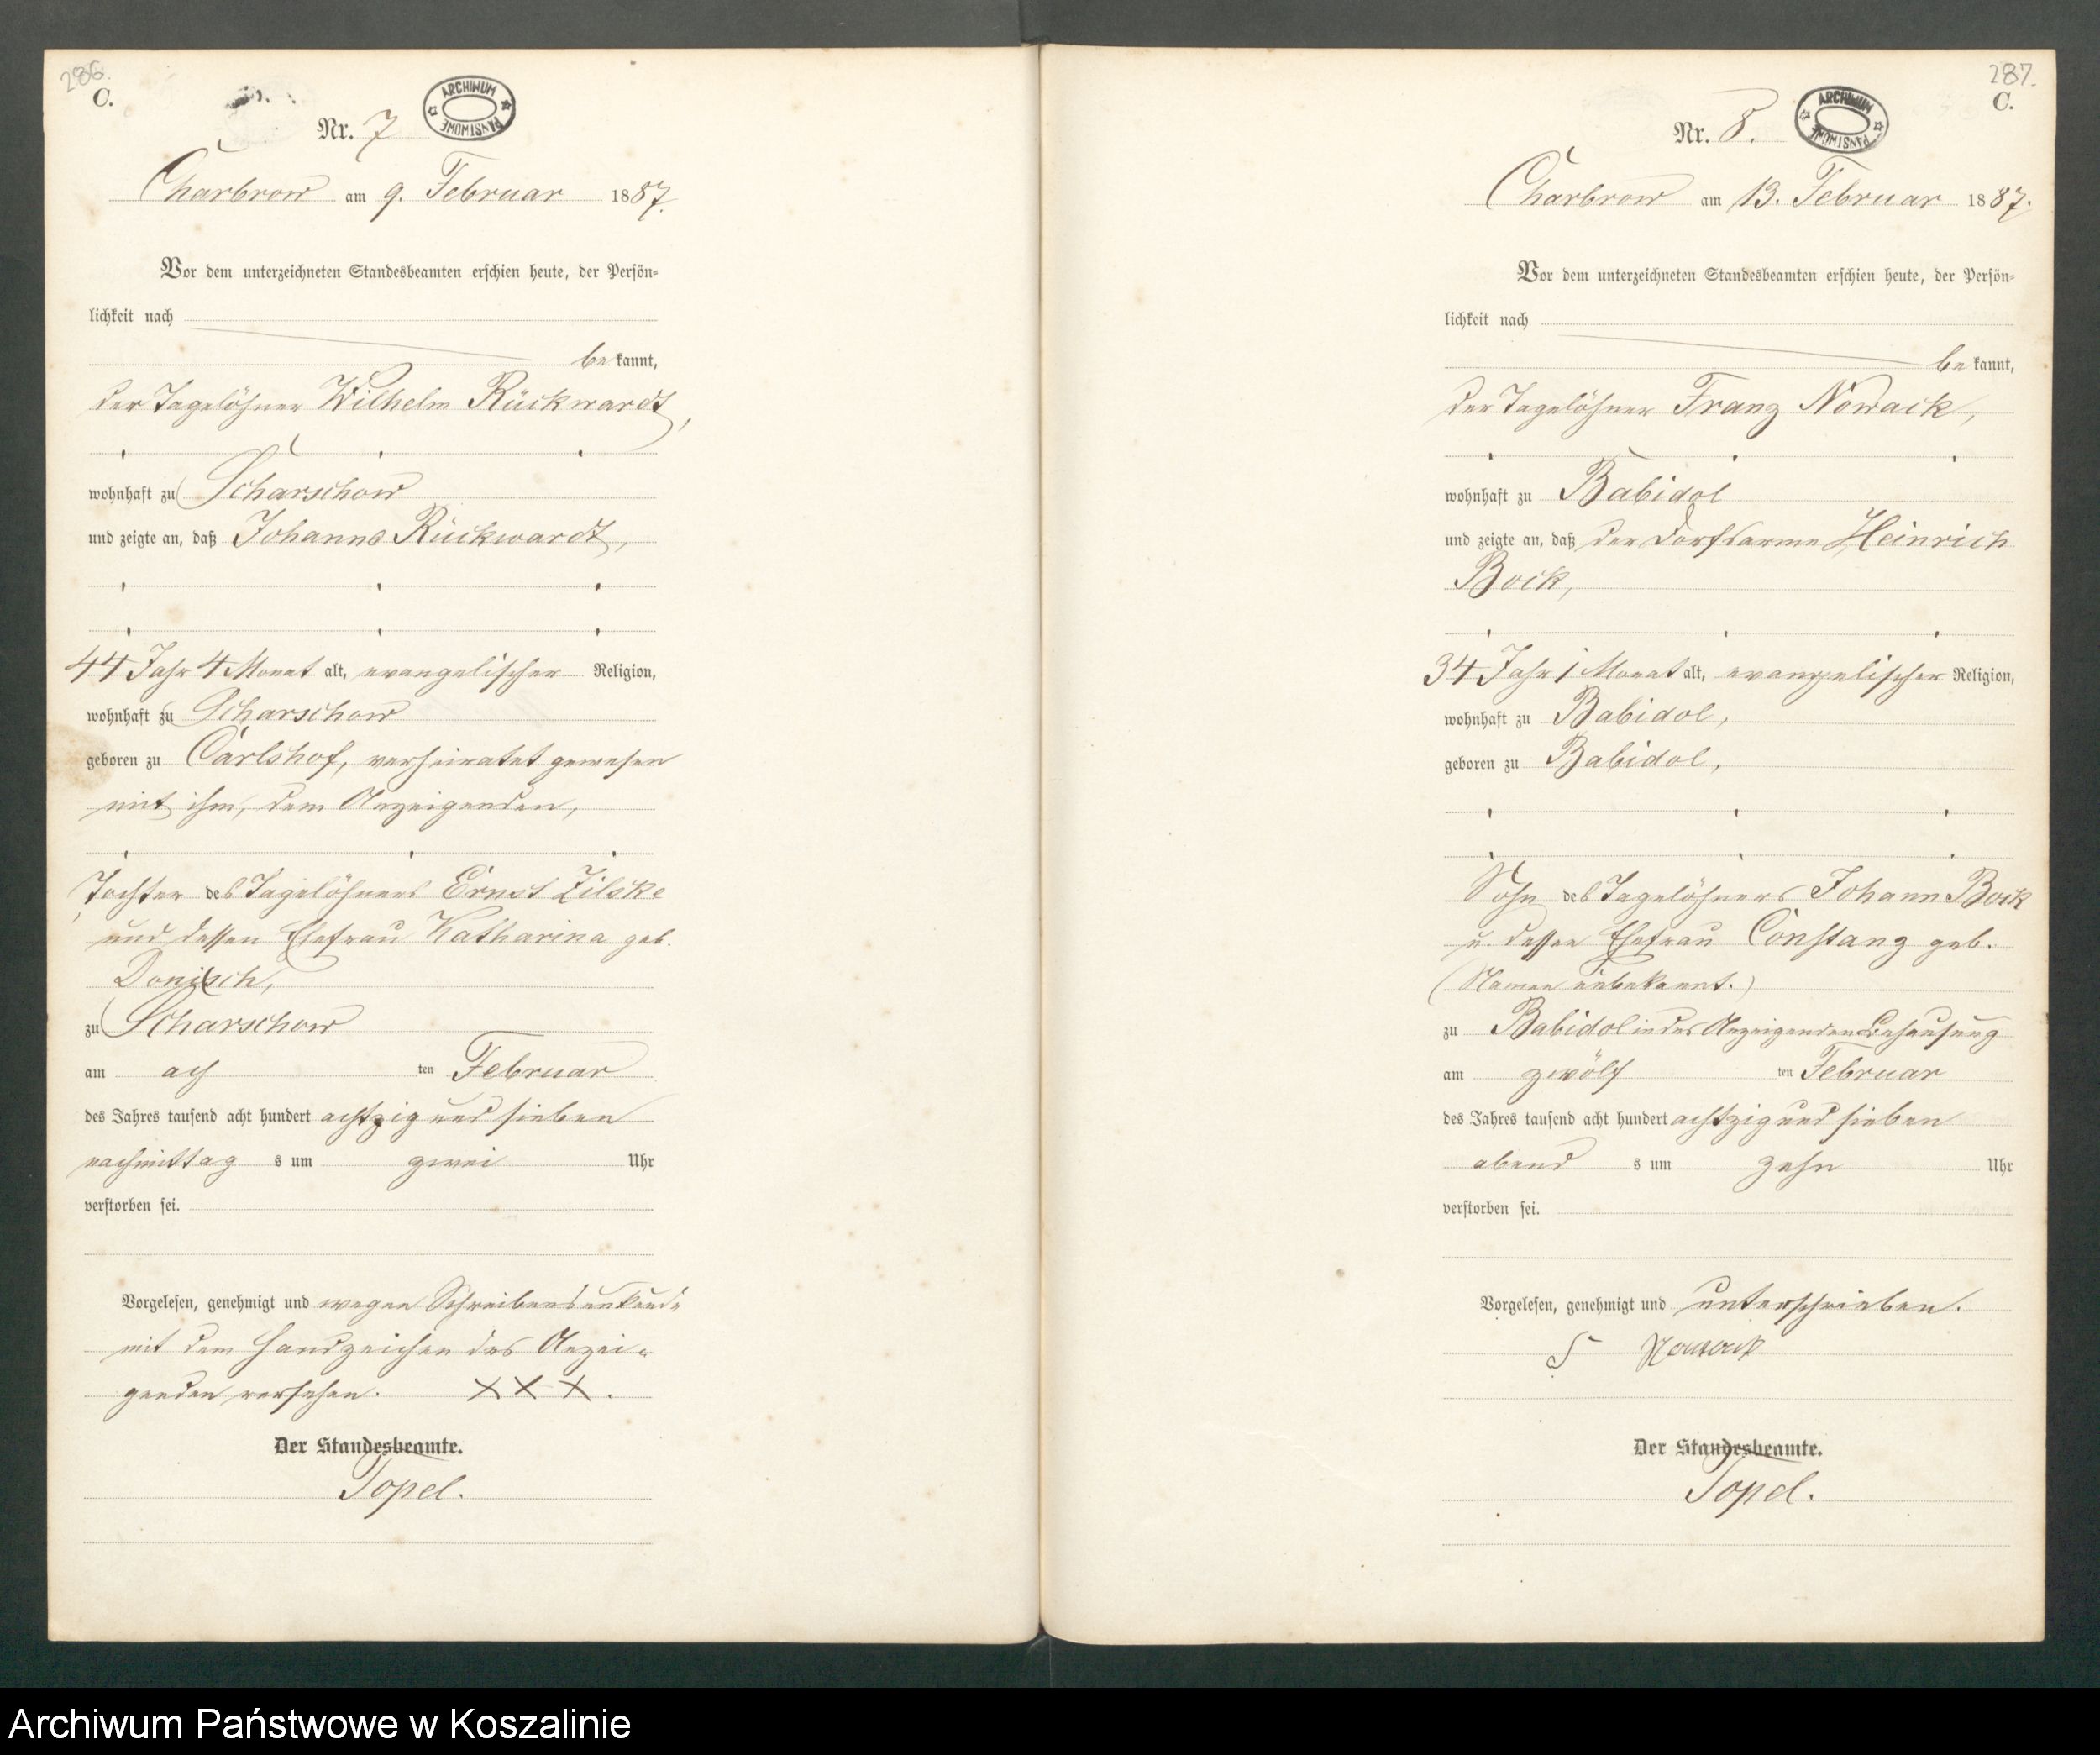 286.
C.
Nr. 7
ARCHIWUM PAŃSTWOWE
Charbrow am 9. Februar 1887.
Vor dem unterzeichneten Standesbeamten erschien heute, der Persön-
lichkeit nach
bekannt,
der Tagelöhner Wilhelm Rückwardt,
wohnhaft zu Scharschow
und zeigte an, daß Johanne Rückwardt,
44 Jahr 4 Monat alt, evangelischer Religion,
wohnhaft zu Scharschow
geboren zu Carlshof, verheiratet gewesen
mit ihm, dem Anzeigenden,
Tochter des Tagelöhners Ernst Zilske
und dessen Ehefrau Katharina geb.
zu Scharschow
am ach ten Februar
des Jahres tausend acht hundert achtzig und sieben
nachmittag s um zwei Uhr
verstorben sei.
Vorgelesen, genehmigt und wegen Schreibensunkunde
mit dem Handzeichen des Anzei-
genden versehen. XXX.
Der Standesbeamte.
Topel.
287.
C.
Nr. 8.
ARCHIWUM PAŃSTWOWE
Charbrow am 13. Februar 1887.
Vor dem unterzeichneten Standesbeamten erschien heute, der Persön-
lichkeit nach
bekannt,
der Tagelöhner Franz Nowack,
wohnhaft zu Babidol
und zeigte an, daß der Dorfsarme Heinrich
Bock,
34 Jahr 1 Monat alt, evangelischer Religion,
wohnhaft zu Babidol,
geboren zu Babidol,
Sohn des Tagelöhners Johann Bock
u. dessen Ehefrau Constanz geb.
(Namen unbekannt.)
zu Babidol in des Anzeigenden Behausung
am zwölf ten Februar
des Jahres tausend acht hundert achtzig und sieben
abend s um zehn Uhr
verstorben sei.
Vorgelesen, genehmigt und unterschrieben.
Nowack
Der Standesbeamte.
Topel.
Archiwum Państwowe w Koszalinie